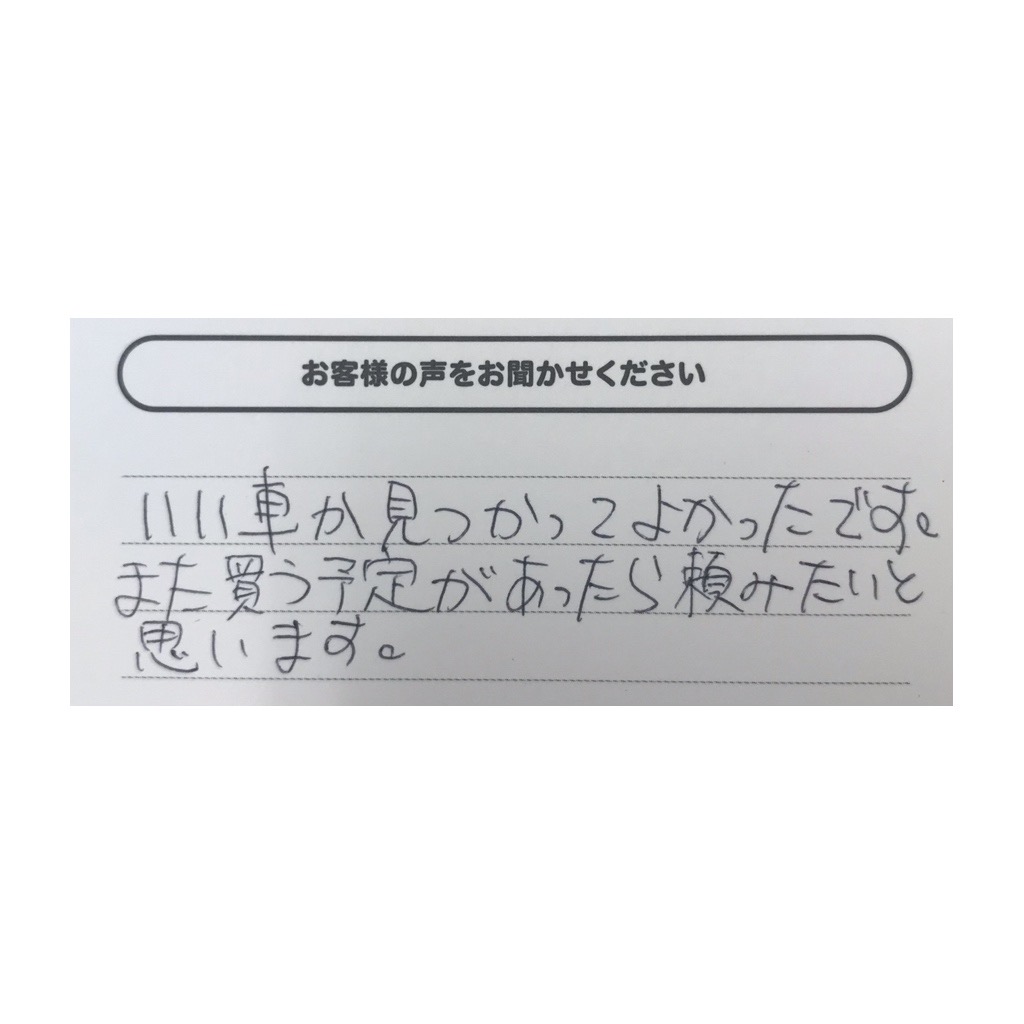 お客様の声をお聞かせください
いい車か見つかってよかったです。
また買う予定があったら頼みたいと
思います。